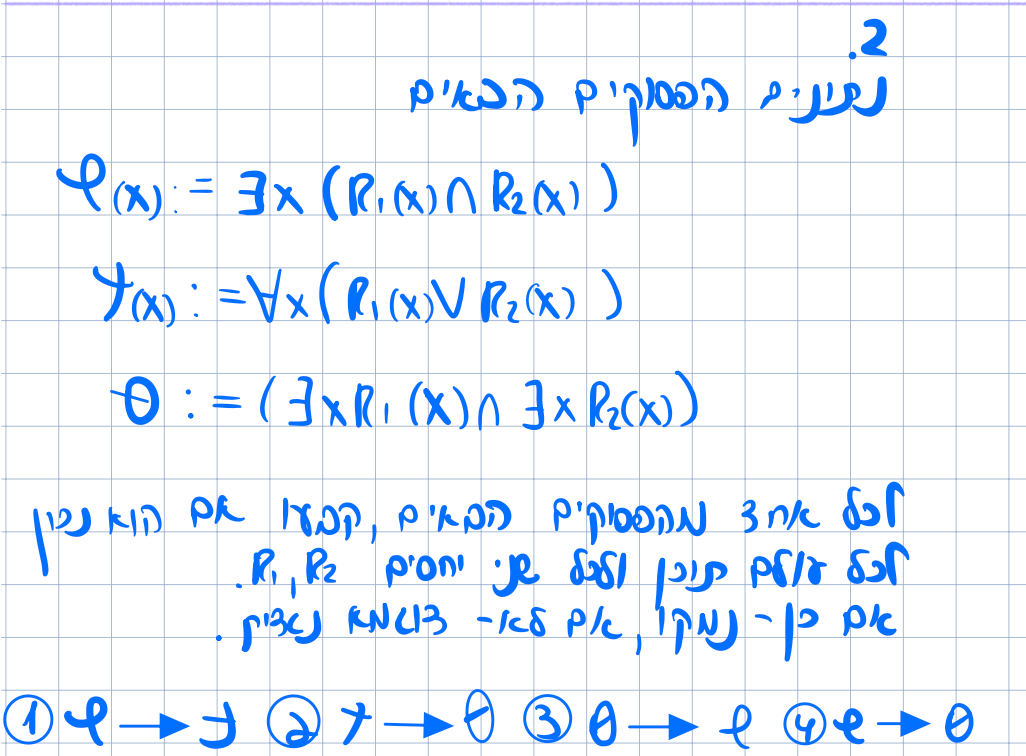 .2
נתונים הפסוקים הבאים
φ(x) := ∃x (R₁(x) ∩ R₂(x))
ψ(x) := ∀x (R₁(x) ∨ R₂(x))
θ := (∃x R₁(x) ∩ ∃x R₂(x))
לכל אחד מהפסוקים הבאים, קבעו אם הוא נכון
לכל עולם תוכן ולכל שני יחסים R₁, R₂.
אם כן - נמקו, אם לא - דוגמא נגדית.
① φ → ψ ② ψ → θ ③ θ → φ ④ φ → θ